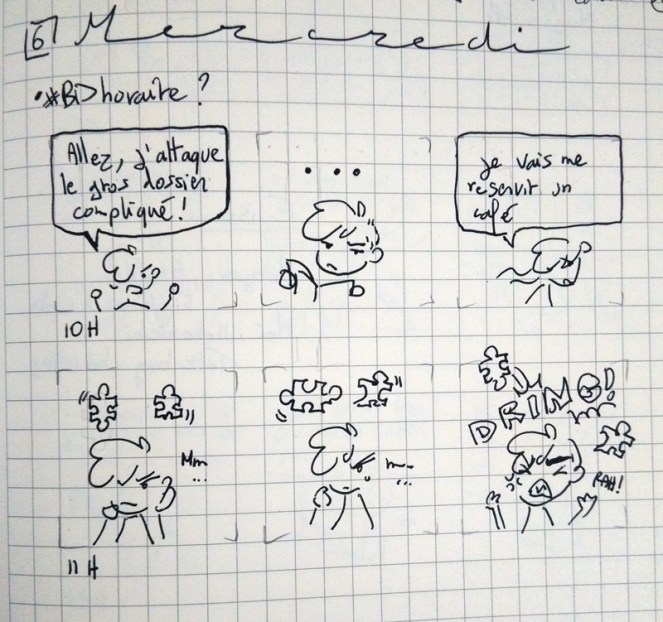 6 Mercredi
• #BD horaire ?
Allez, j'attaque
le gros dossier
compliqué !
...
je vais me
reservir un
café
10H
Mm
...
m~
...
DRIIING!
RAH!
11H